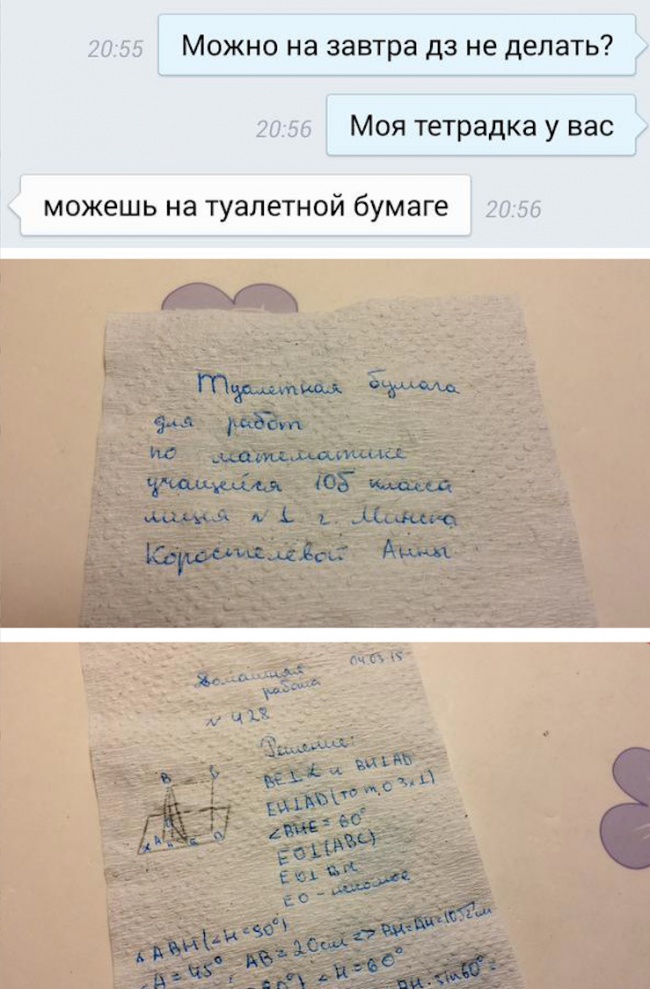 20:55 Можно на завтра дз не делать?
20:56 Моя тетрадка у вас
можешь на туалетной бумаге 20:56
Туалетная бумага
для работ
по математике
учащейся 10б класса
лицея №1 г. Минска
Коростелёвой Анны
Домашняя 04.03.15
работа
№ 428
Решение:
BE⊥α и BH⊥AD
EH⊥AD (то т.о 3х⊥)
∠BHE = 60°
EO⊥(ABC)
EO⊥BH
EO - искомое
ABH (∠H=90°)
∠A = 45°, AB = 20см => BH=AH=10√2см
∠H=60°
BH · sin60° =